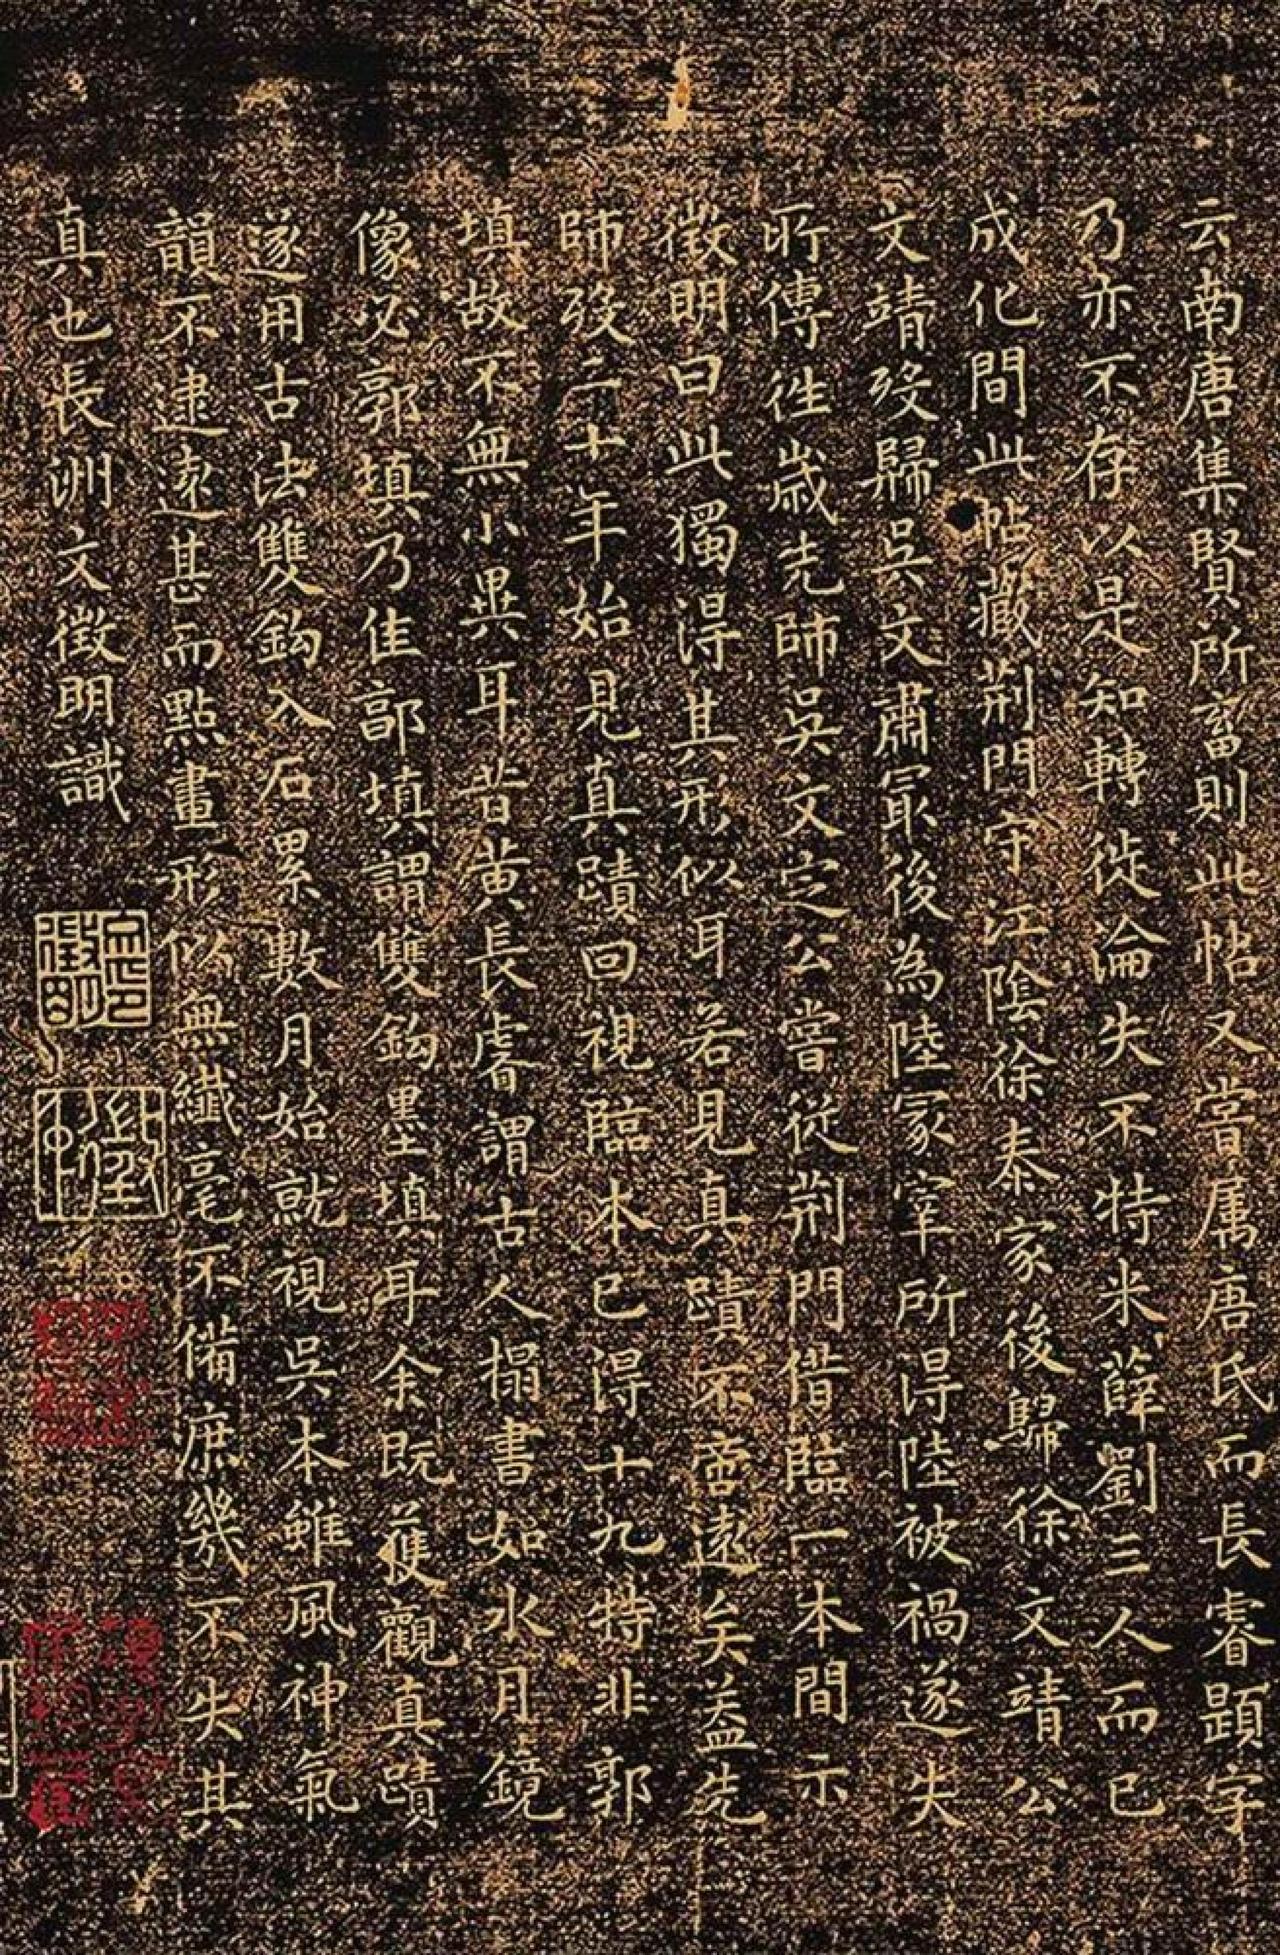 云南唐集賢所畜則此帖又嘗属唐氏而長睿題字
乃亦不存以是知轉徙淪失不特米薛劉三人而已
成化間此帖藏荆門守江陰徐泰家後歸徐文靖公
文靖歿歸吳文肅冣後為陸冢宰所得陸被禍遂失
所傳徃歲先師吳文定公嘗從荆門借臨一本間示
徵明曰此獨得其形似耳若見真蹟不啻遠矣葢先
師歿二十年始見真蹟回視臨本已得十九特非郭
填故不無小異耳昔黄長睿謂古人搨書如水月鏡
像必郭填乃佳郭填謂雙鈎墨填耳余既獲觀真蹟
遂用古法雙鈎入石累數月始就視吳本雖風神氣
韻不逮遠甚而點畫形似無纖毫不備庶幾不失其
真也長洲文徵明識